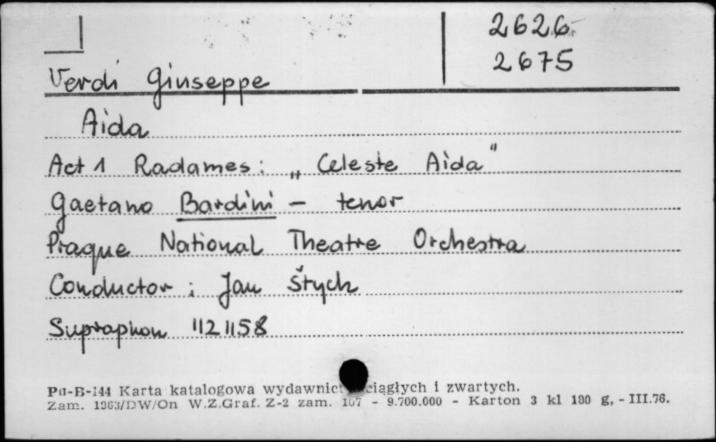 2626
2675
Verdi Giuseppe
Aida
Act 1 Radames: „Celeste Aida"
Gaetano Bardini – tenor
Prague National Theatre Orchestra
Conductor: Jan Štych
Supraphon 1121158
Pu-B-144 Karta katalogowa ciągłych i zwartych.
Zam. 1963/DW/On W.Z.Graf. Z-2 zam. - 9.700.000 - Karton 3 kl 180 g, - III.76.